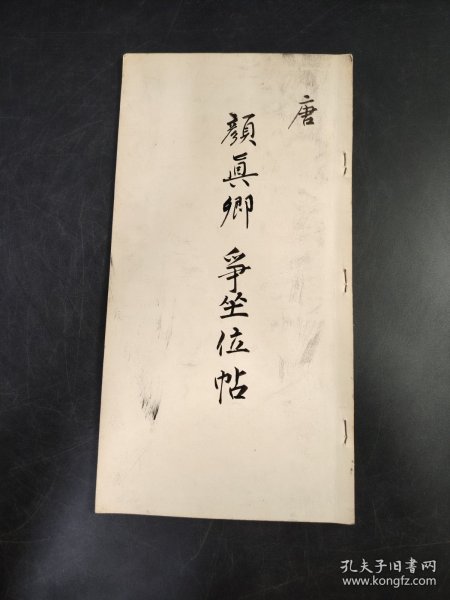 唐
顏眞卿 爭坐位帖
孔夫子旧书网
www.kongfz.com